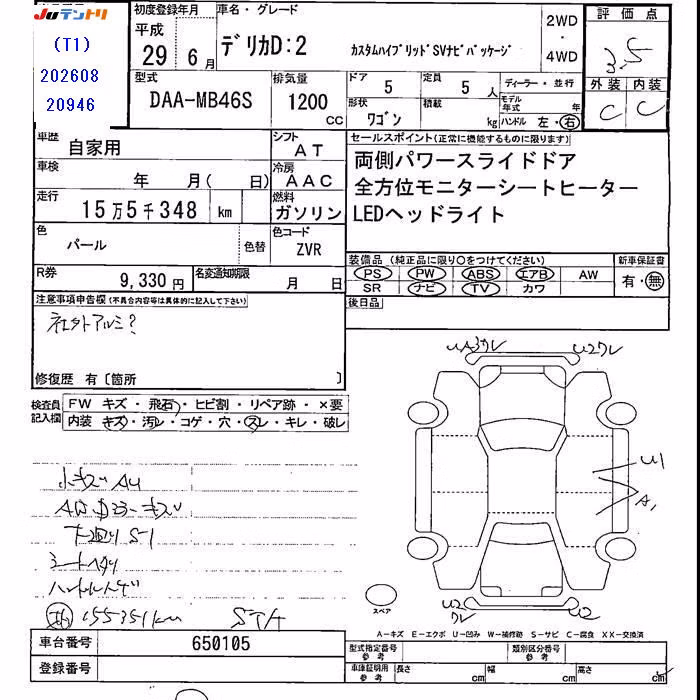 Juテントリ
(T1)
202608
20946
初度登録年月
平成
29 6月
車名・グレード
デリカD:2 カスタムハイブリッドSVナビパッケージ
2WD
・
4WD
評価点
3.5
外装 内装
C C
型式
DAA-MB46S
排気量
1200 CC
ドア
5
定員
5 人
形状
ワゴン
積載
kg
ディーラー・並行
モデル年式 年
ハンドル 左・右
車歴
自家用
シフト
AT
車検
年 月( 日)
冷房
AAC
走行
15万5千348 km
燃料
ガソリン
色
パール
色替
色コード
ZVR
R券
9,330円
名変通知期限
月 日
セールスポイント(正常に機能するものに限ります)
両側パワースライドドア
全方位モニターシートヒーター
LEDヘッドライト
装備品(純正品に限り○をつけてください)
PS PW ABS エアB AW
SR ナビ TV カワ
新車保証書
有・無
後日品
注意事項申告欄(不具合内容等は具体的に記入して下さい)
社外アルミ?
修復歴 有〔箇所 〕
検査員記入欄
FW キズ・飛石・ヒビ割・リペア跡・×要
内装 キズ・汚レ・コゲ・穴・スレ・キレ・破レ
小キズ AU
下廻り S1
シートヘタリ
155351km
UA3ワレ
U2ワレ
U1
A1
U2
ワレ
U2
スペア
A-キズ E-エクボ U-凹み W-補修跡 S-サビ C-腐食 XX-交換済
車台番号
650105
登録番号
型式指定番号
参考
類別区分番号
参考
車庫証明用
参考
長さ cm 幅 cm 高さ cm